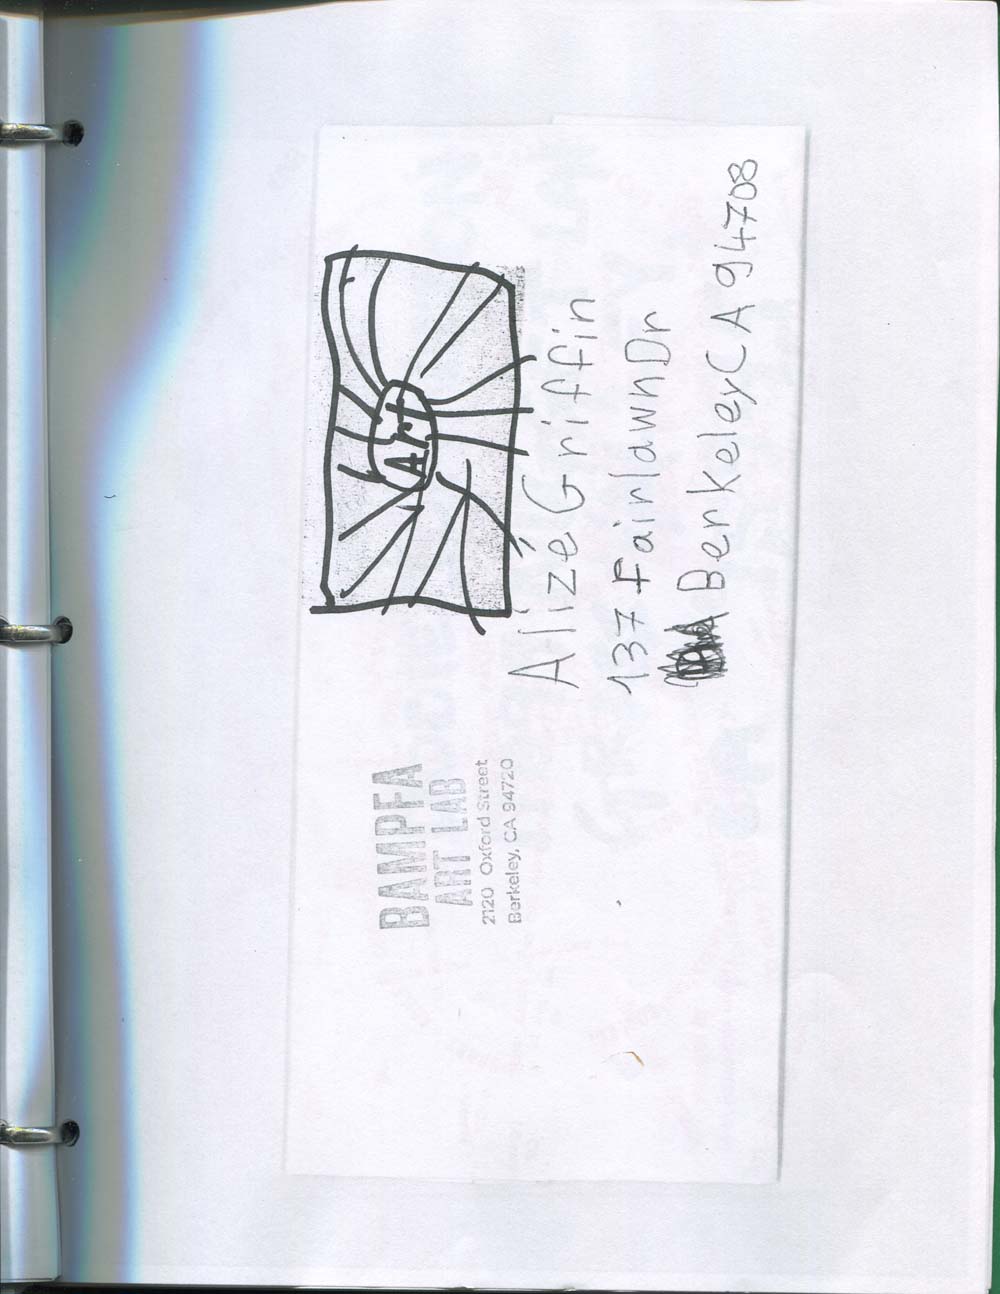 BAMPFA
ART LAB
2120 Oxford Street
Berkeley, CA 94720
Art
Alizé Griffin
137 Fairlawn Dr
Berkeley CA 94708